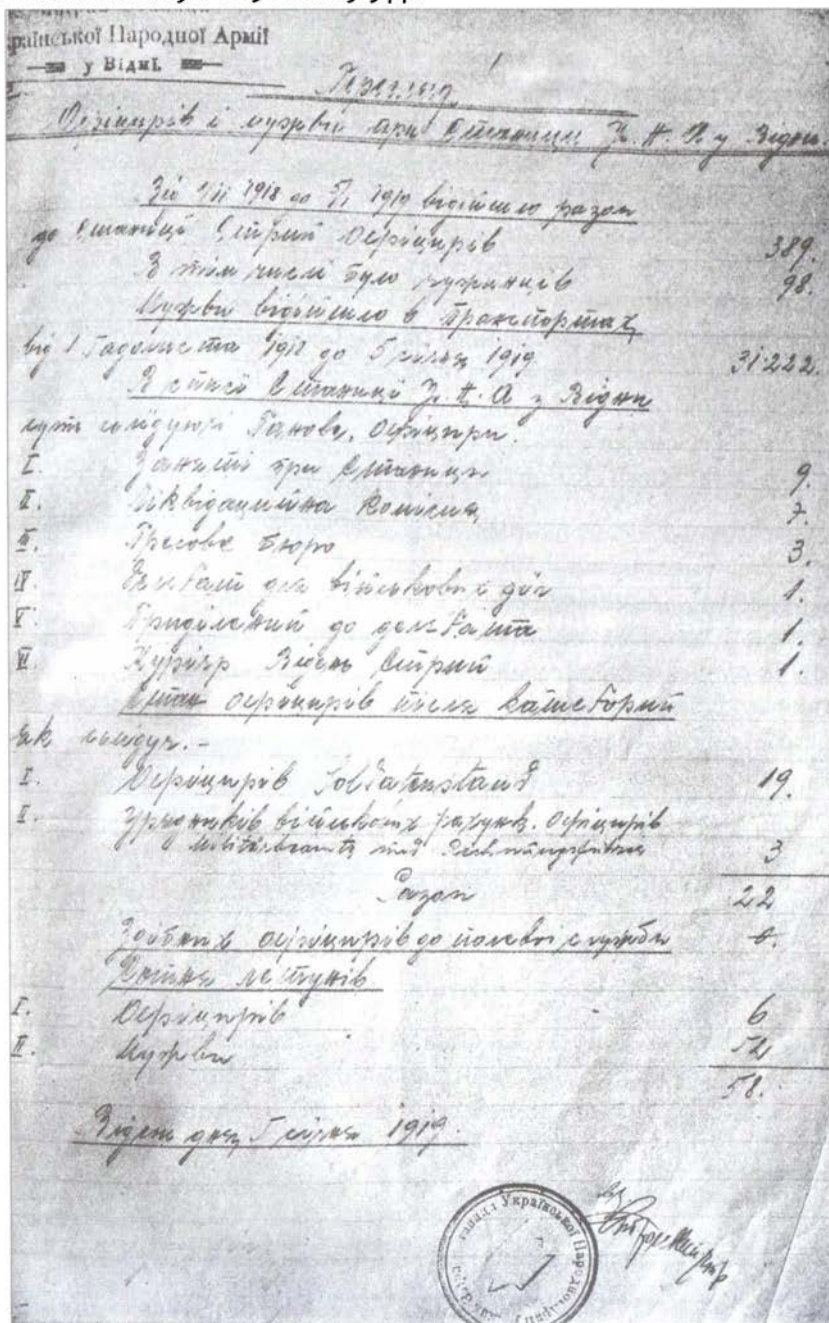 раїнської Народної Армії
у Відні.
Офіцирів і мужви при Станици У. Н. А. у Відни.
Зі 1/11 1918 до 5/1 1919 відійшло разом
до Станиці Стрий Офіцирів 389.
В тім числі було 98.
Мужви відійшло в транспортах
від 1 Падолиста 1918 до 5 січня 1919 31·222.
В Станиці У. Н. А у Відни
суть слідуючі Панове, Офіцири.
I. Заняті при Станици 9.
II. Ліквідацийна Комісия 7.
III. Пресове Бюро 3.
IV. Делєґат для військових 1.
V. Приділений до делєґата 1.
VI. Курієр Відень Стрий 1
Стан офіцирів після катеґорий
як слідує. -
I. Офіцирів Soldatenstand 19.
II. Урядників військових рахунк. Офіцирів
3
Разом 22
Здібних офіцирів до полевої служби
летунів
I. Офіцирів 6
II. Мужви 52
58.
Відень дня 5 січня 1919.
Української Народньої